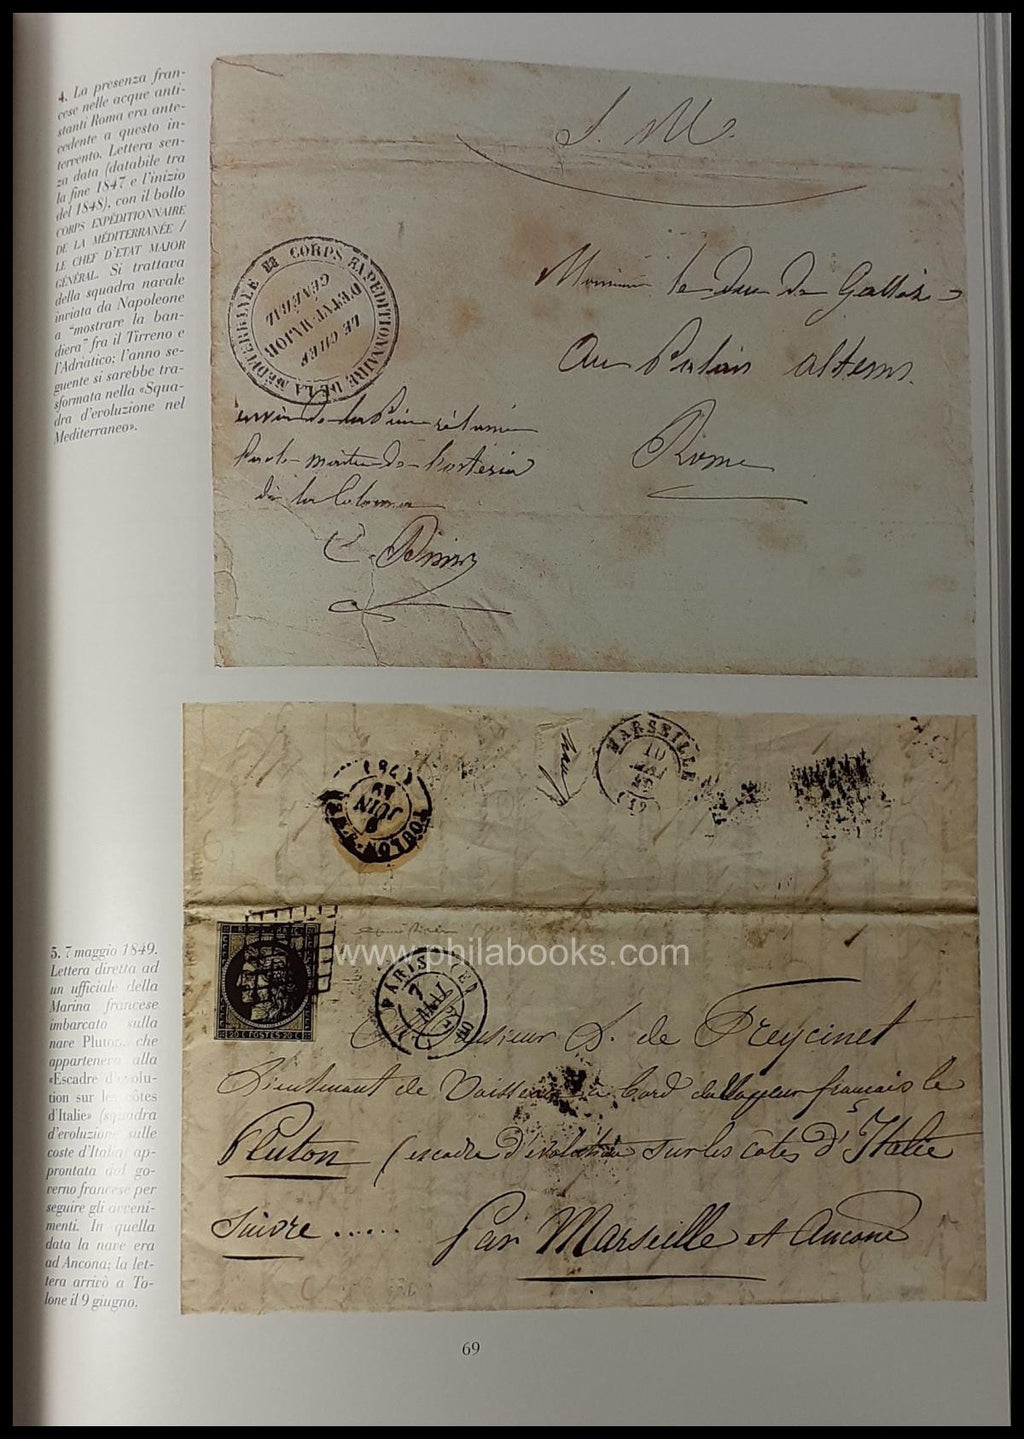 4. La presenza fran-
cese nelle acque anti-
stanti Roma era ante-
cedente a questo in-
tervento. Lettera sen-
za data (databile tra
la fine 1847 e l'inizio
del 1848), con il bollo
CORPS EXPÉDITIONNAIRE
DE LA MÉDITERRANÉE /
LE CHEF D'ETAT MAJOR
GÉNÉRAL. Si trattava
della squadra navale
inviata da Napoleone
a "mostrare la ban-
diera" fra il Tirreno e
l'Adriatico; l'anno se-
guente si sarebbe tra-
sformata nella «Squa-
dra d'evoluzione nel
Mediterraneo».
S. M.
CORPS EXPEDITIONNAIRE DE LA MÉDITERRANÉE
LE CHEF
D'ETAT MAJOR
GÉNÉRAL
Monsieur le duc de
au Palais altems.
Rome
de la Colonna
5. 7 maggio 1849.
Lettera diretta ad
un ufficiale della
Marina francese
imbarcato sulla
nave Pluton, che
apparteneva alla
«Escadre d'evolu-
tion sur les côtes
d'Italie» (squadra
d'evoluzione sulle
coste d'Italia) ap-
prontata dal go-
verno francese per
seguire gli avveni-
menti. In quella
data la nave era
ad Ancona; la let-
tera arrivò a To-
lone il 9 giugno.
MARSEILLE
10
MAI
(12)
TOULON-S-MER
9
JUIN
49
(78)
www.philabooks.com
20 C POSTES 20 C
PARIS
7
MAI
49
(60)
Monsieur S. de Freycinet
Lieutenant de Vaisseau à bord du Vapeur français le
Pluton (escadre d'évolution sur les côtes d'Italie
Suivre ..... par Marseille et Ancone
69